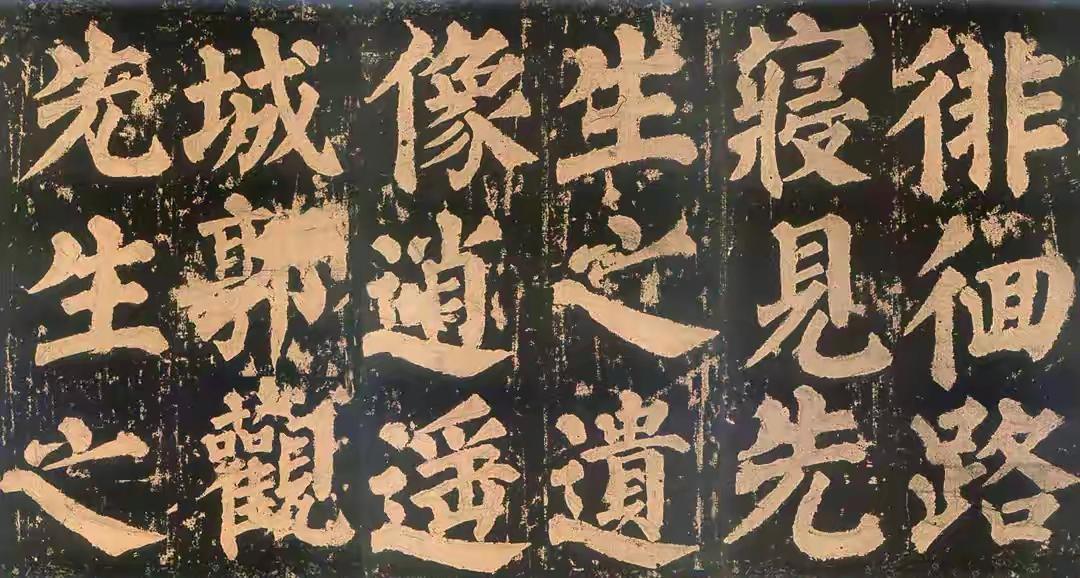 徘徊路
寢見先
生之遺
像逍遙
城郭觀
先生之